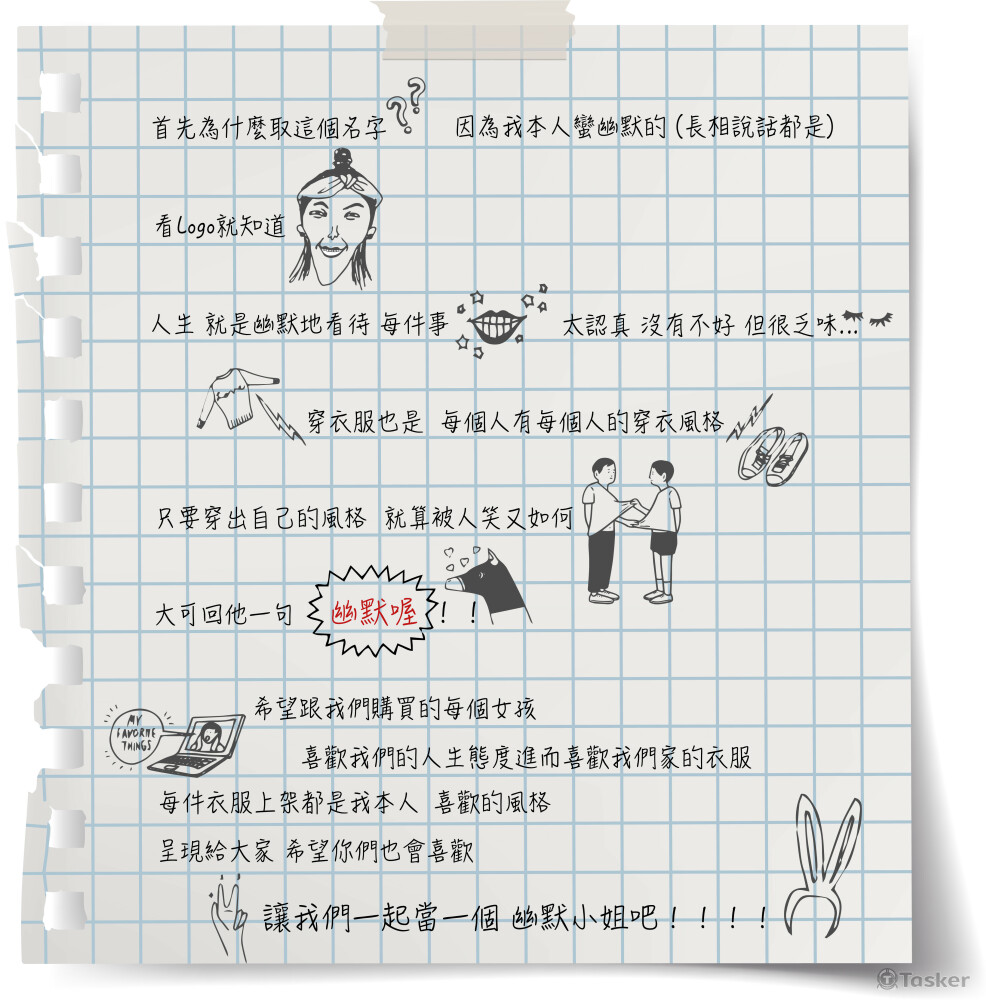 首先為什麼取這個名字?? 因為我本人蠻幽默的(長相說話都是)
看Logo就知道
人生 就是幽默地看待 每件事 太認真 沒有不好 但很乏味...
穿衣服也是 每個人有每個人的穿衣風格
只要穿出自己的風格 就算被人笑又如何
大可回他一句 幽默喔!!
希望跟我們購買的每個女孩
MY
FAVORITE
THINGS
喜歡我們的人生態度進而喜歡我們家的衣服
每件衣服上架都是我本人 喜歡的風格
呈現給大家 希望你們也會喜歡
讓我們一起當一個 幽默小姐吧!!!!
Tasker